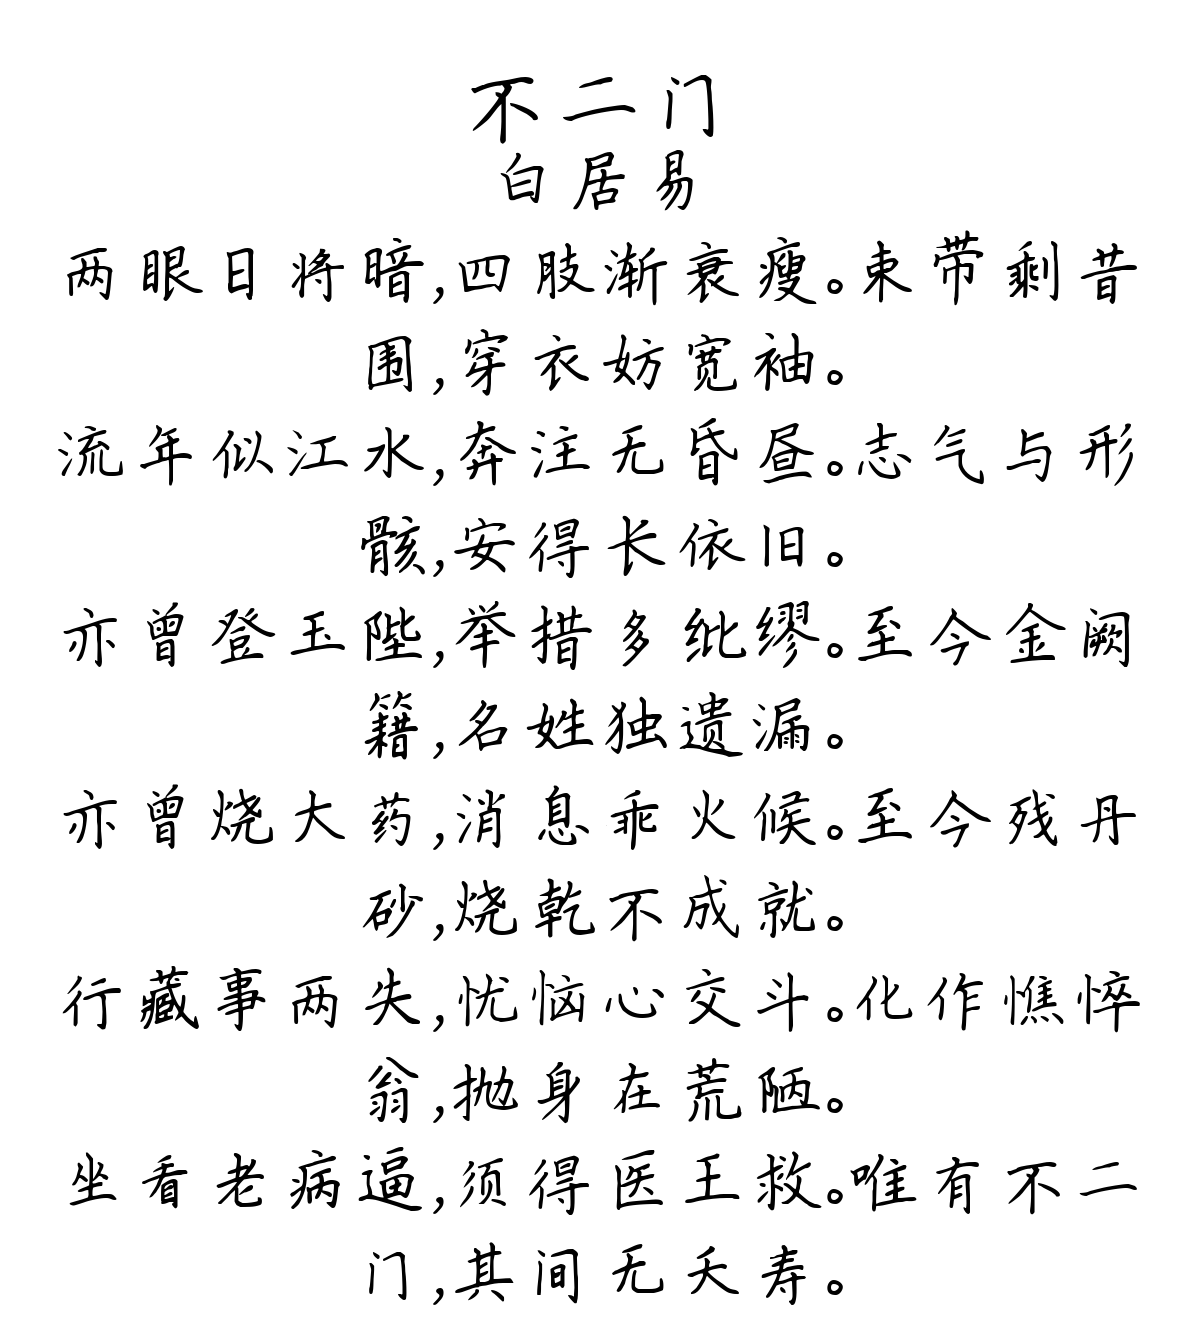 不二门
白居易
两眼日将暗,四肢渐衰瘦。束带剩昔
围,穿衣妨宽袖。
流年似江水,奔注无昏昼。志气与形
骸,安得长依旧。
亦曾登玉陛,举措多纰缪。至今金阙
籍,名姓独遗漏。
亦曾烧大药,消息乖火候。至今残丹
砂,烧乾不成就。
行藏事两失,忧恼心交斗。化作憔悴
翁,抛身在荒陋。
坐看老病逼,须得医王救。唯有不二
门,其间无夭寿。